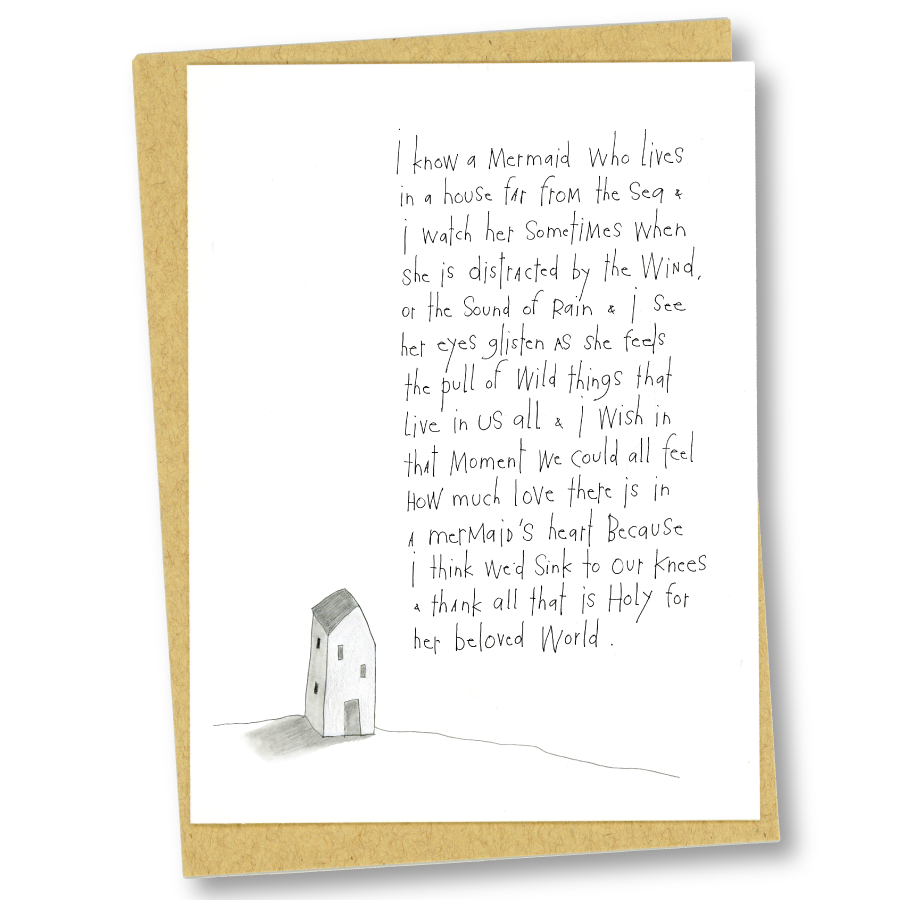 I know a Mermaid who lives
in a house far from the Sea &
i watch her Sometimes When
she is distracted by the Wind,
or the Sound of Rain & i see
her eyes glisten AS she feels
the pull of Wild things that
live in us all & i Wish in
that Moment We could all feel
How much love there is in
A merMaiD's heart Because
i think we'd Sink to our Knees
& thank all that is Holy for
her beloved World.